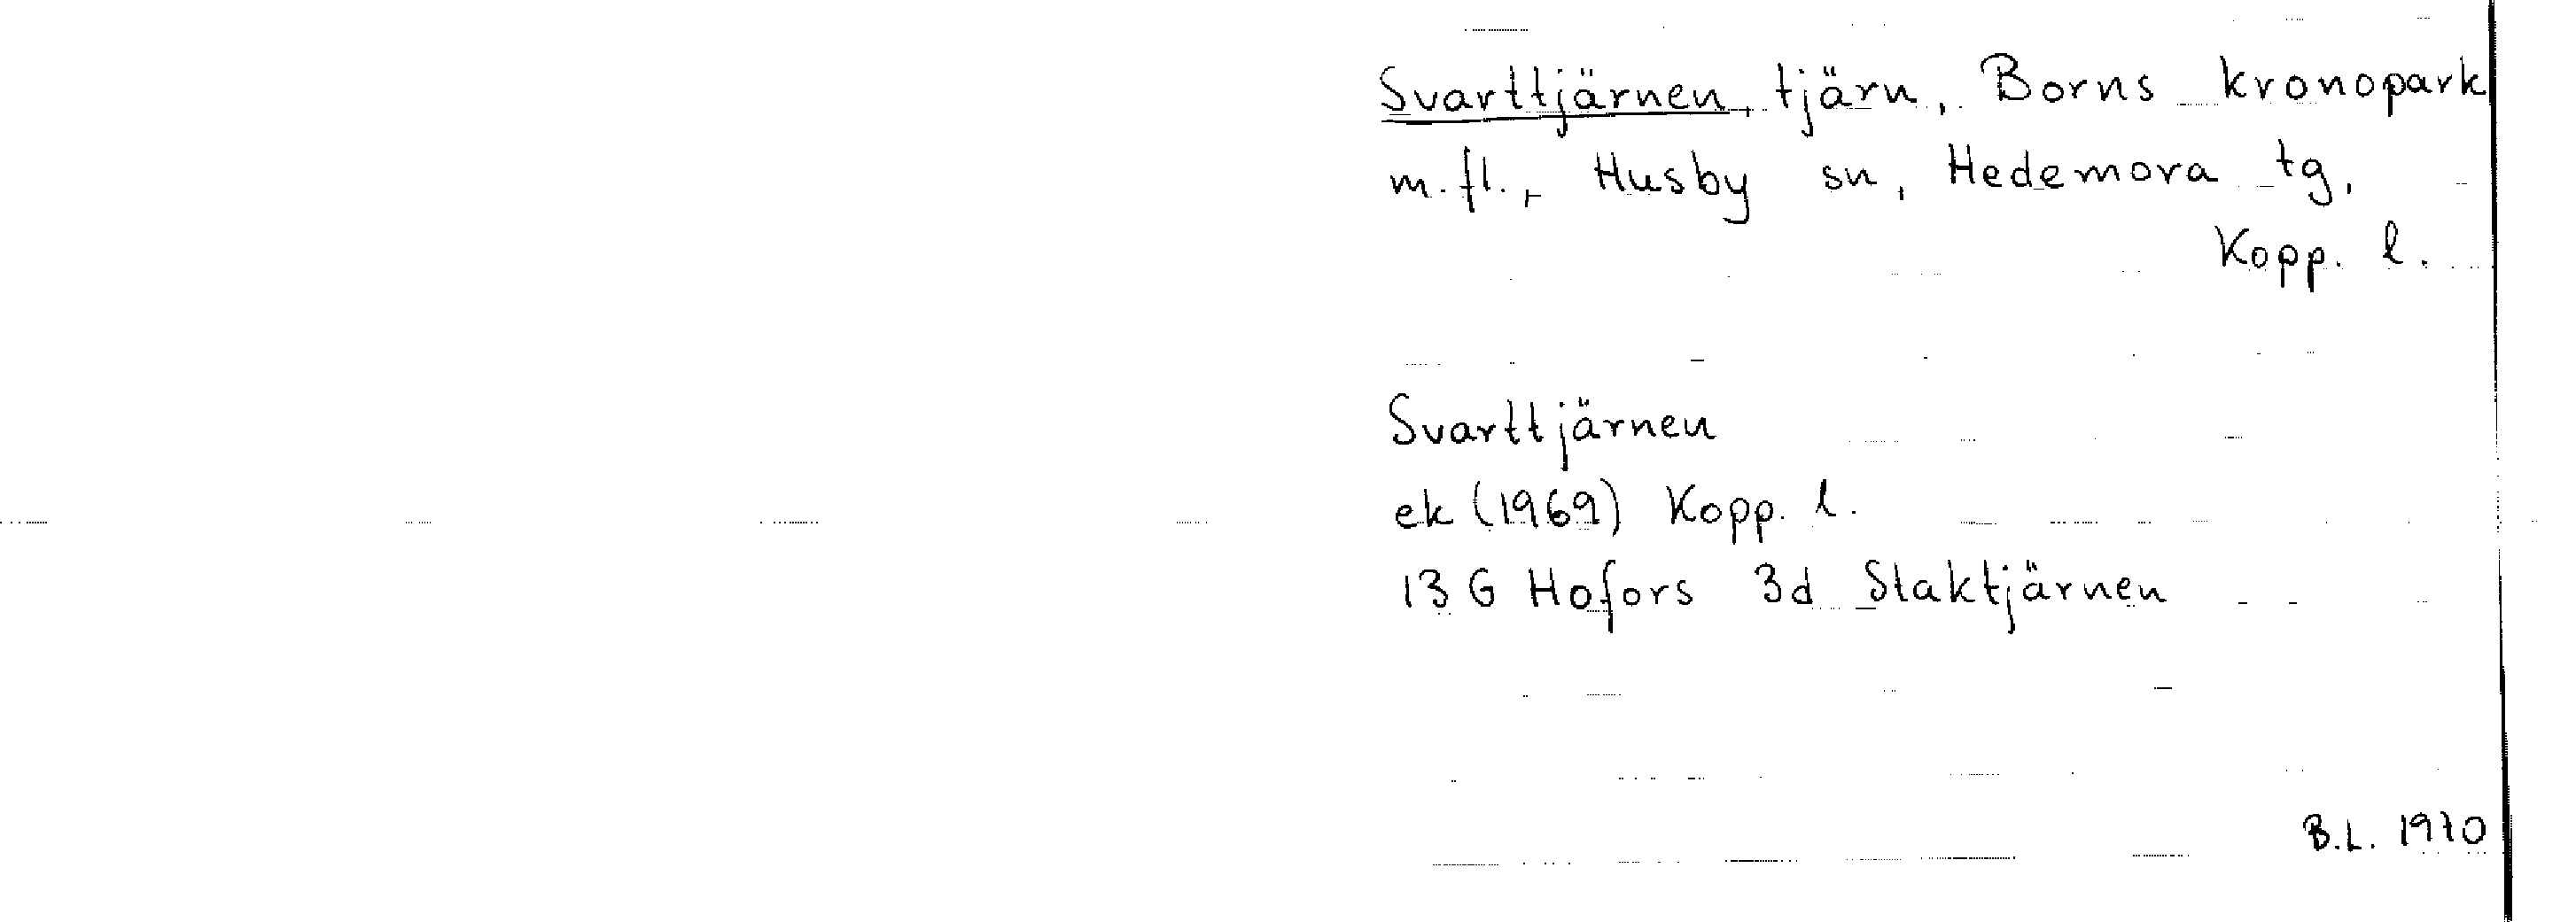 Svarttjärnen, tjärn, Borns kronopark
m.fl., Husby sn, Hedemora tg,
Kopp. l.
Svarttjärnen
ek (1969) Kopp. l.
13 G Hofors 3d Staktjärnen
B.L. 1970